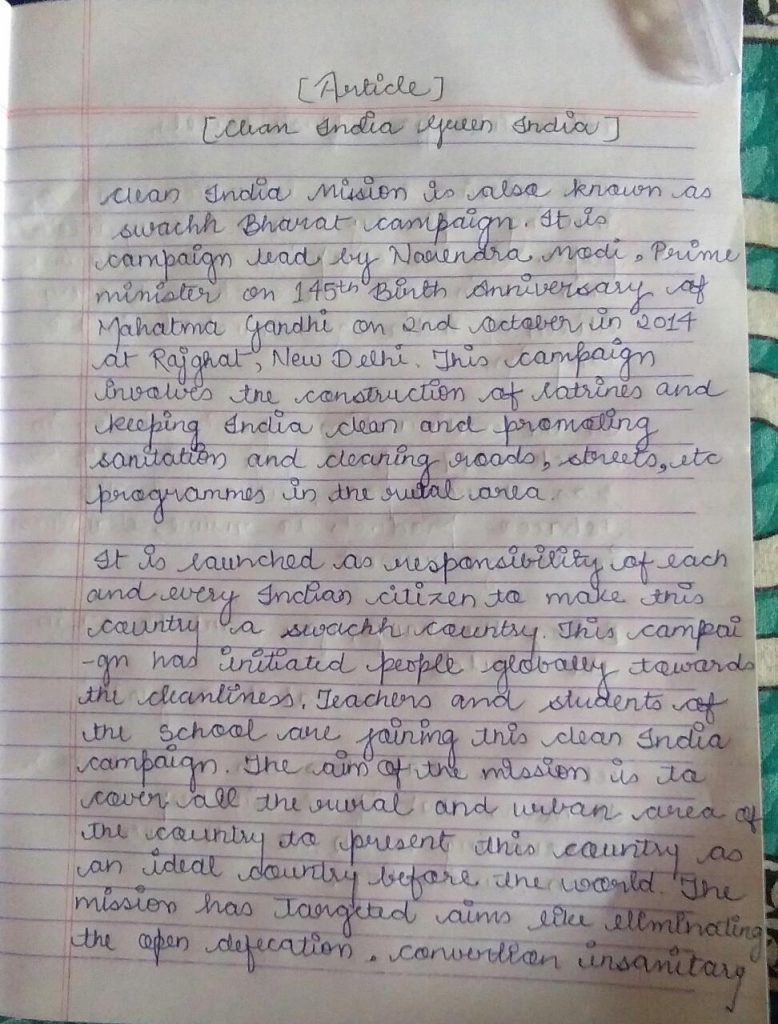 [Article]
[Clean India Green India]
Clean India Mission is also known as
swachh Bharat campaign. It is
campaign lead by Narendra Modi, Prime
minister on 145th Birth Anniversary of
Mahatma Gandhi on 2nd October in 2014
at Rajghat, New Delhi. This campaign
involves the construction of latrines and
keeping India clean and promoting
sanitation and cleaning roads, streets, etc
programmes in the rural area.
It is launched as responsibility of each
and every Indian citizen to make this
country a swachh country. This campai
-gn has initiated people globally towards
the cleanliness. Teachers and students of
the school are joining this clean India
campaign. The aim of the mission is to
cover all the rural and urban area of
the country to present this country as
an ideal country before the world. The
mission has targeted aims like elliminating
the open defecation, convertion insanitary